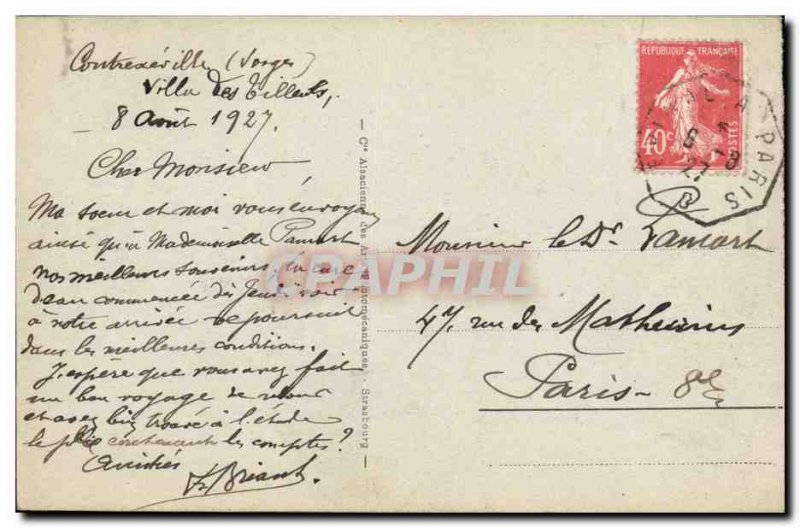 Contrexéville (Vosges)
Villa des Tilleuls,
8 Août 1927.
Cher Monsieur
Ma soeur et moi vous envoyons
ainsi qu'à Mademoiselle Pamart
nos meilleurs souvenirs. La cure
d'eau commencée dès Jeudi soir
à notre arrivée se poursuit
dans les meilleures conditions.
J'espère que vous avez fait
un bon voyage de retour
et avez bien trouvé à l'étude
le pli contenant les comptes?
Amitiés
Briant.
Cie Alsacienne des Arts Photomécaniques, - Strasbourg
REPUBLIQUE FRANÇAISE
40c
POSTES
PARIS
6 - 8
27
Monsieur le Dr. Pamart
47 rue des Mathurins
Paris - 8e
CPAPHIL